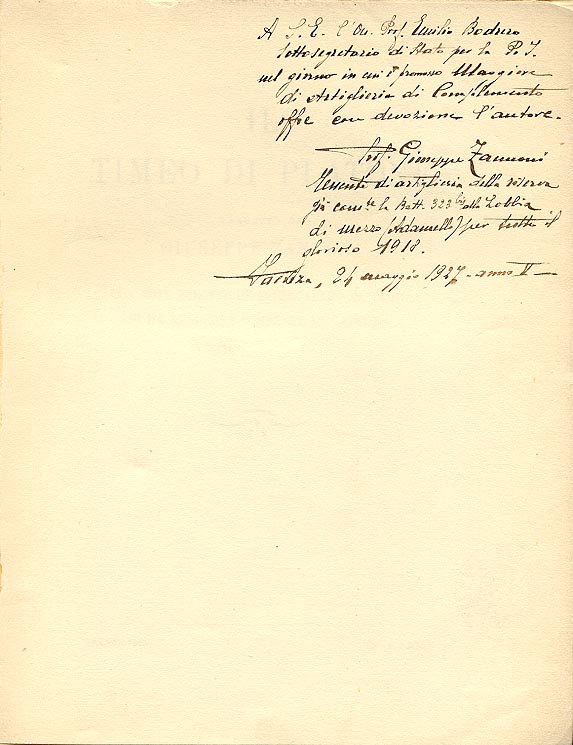 A S. E. l'On. Prof. Emilio Bodrero
Sottosegretario di Stato per la P. I.
nel giorno in cui è promosso Maggiore
di Artiglieria di Complemento
offre con devozione l'autore.
Prof. Giuseppe Zannoni
Tenente di artiglieria della riserva
già com.te la Batt. 323 bis alla Lobbia
di mezzo (Adamello) per tutto il
glorioso 1918.
24 maggio 1927 - anno V -
TIMEO DI